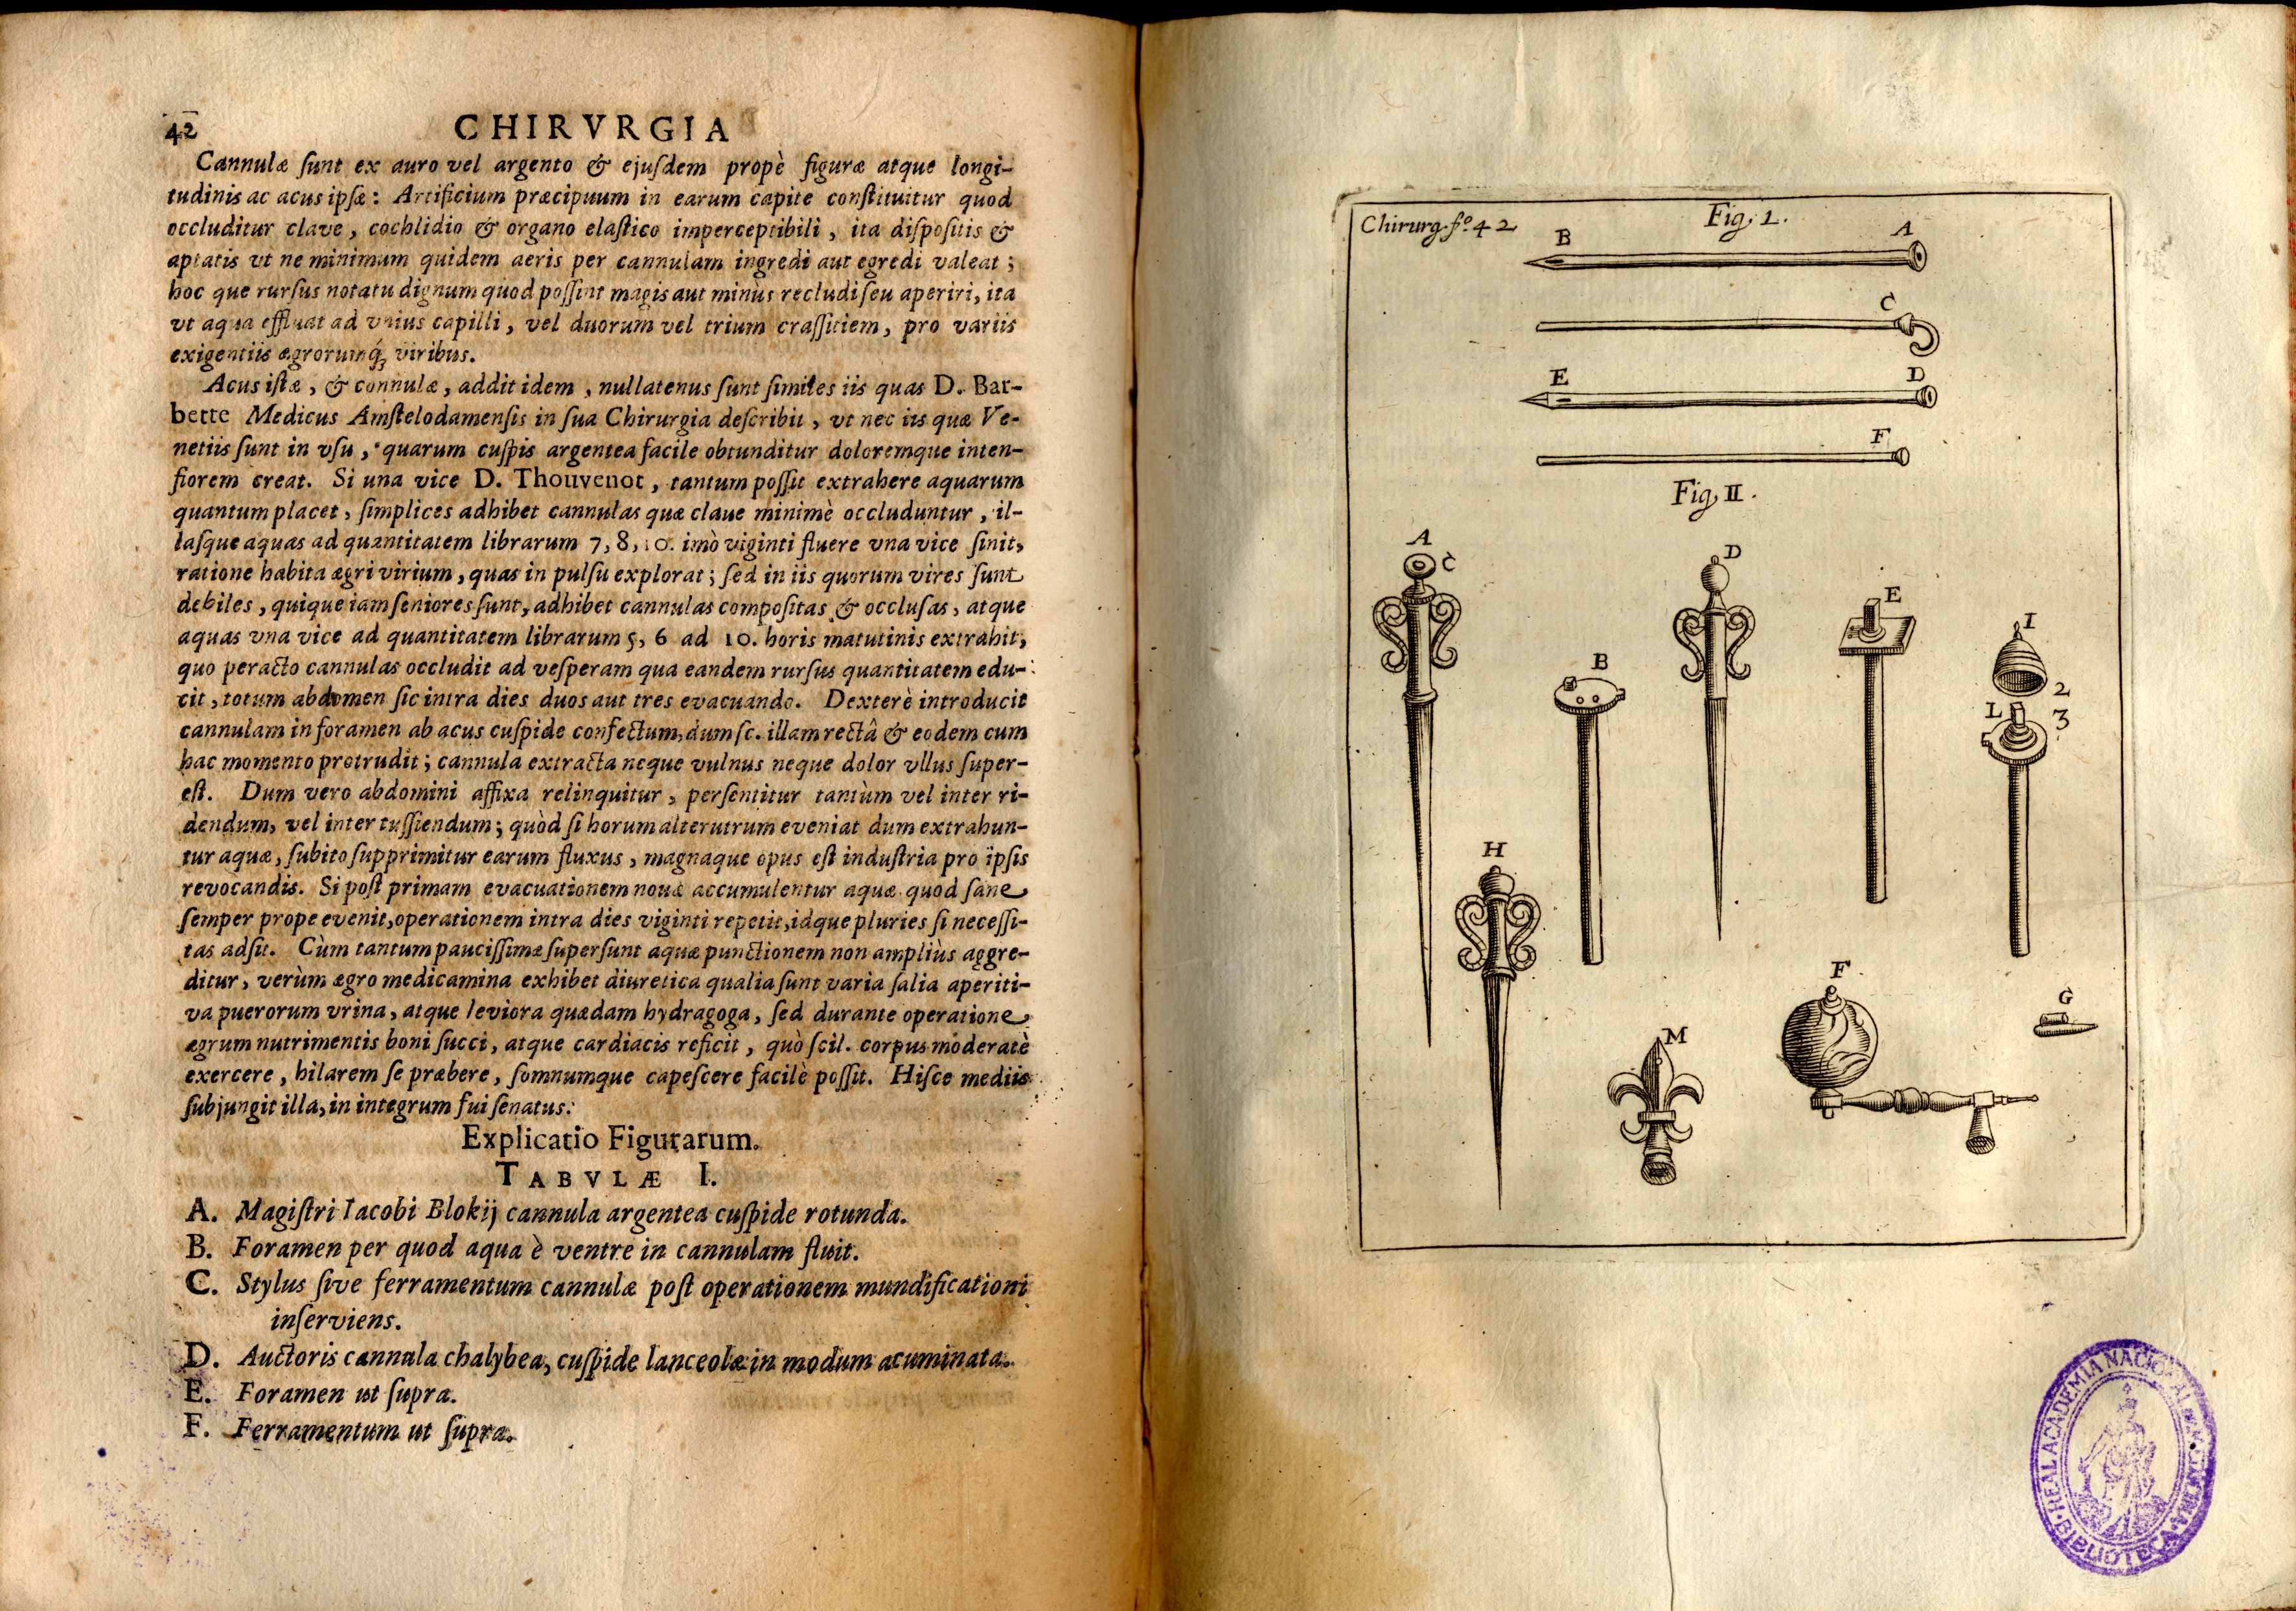 42
CHIRVRGIA
Cannulæ ſunt ex auro vel argento & ejuſdem propè figuræ atque longi-
tudinis ac acus ipſæ: Artificium præcipuum in earum capite conſtituitur quod
occluditur clave, cochlidio & organo elaſtico imperceptibili, ita diſpoſitis &
aptatis vt ne minimum quidem aeris per cannulam ingredi aut egredi valeat;
hoc que rurſus notatu dignum quod poſſint magis aut minùs recludi ſeu aperiri, ita
vt aqua effluat ad vnius capilli, vel duorum vel trium craſſitiem, pro variis
exigentiis ægrorumq́; viribus.
Acus iſtæ, & connulæ, addit idem, nullatenus ſunt ſimiles iis quas D. Bar-
bette Medicus Amſtelodamenſis in ſua Chirurgia deſcribit, vt nec iis quæ Ve-
netiis ſunt in vſu, quarum cuſpis argentea facile obtunditur doloremque inten-
ſiorem creat. Si una vice D. Thouvenot, tantum poſſit extrahere aquarum
quantum placet, ſimplices adhibet cannulas quæ claue minimè occluduntur, il-
laſque aquas ad quantitatem librarum 7, 8, 10. imò viginti fluere vna vice ſinit,
ratione habita ægri virium, quas in pulſu explorat; ſed in iis quorum vires ſunt
debiles, quique iam ſeniores ſunt, adhibet cannulas compoſitas & occluſas, atque
aquas vna vice ad quantitatem librarum 5, 6 ad 10. horis matutinis extrahit,
quo peracto cannulas occludit ad veſperam qua eandem rurſus quantitatem edu-
cit, totum abdomen ſic intra dies duos aut tres evacuando. Dexterè introducit
cannulam in foramen ab acus cuſpide confectum, dum ſc. illam rectâ & eodem cum
hac momento protrudit; cannula extracta neque vulnus neque dolor vllus ſuper-
eſt. Dum vero abdomini affixa relinquitur, perſentitur tantùm vel inter ri-
dendum, vel inter tuſſiendum; quòd ſi horum alterutrum eveniat dum extrahun-
tur aquæ, ſubito ſupprimitur earum fluxus, magnaque opus eſt induſtria pro ipſis
revocandis. Si poſt primam evacuationem nouæ accumulentur aquæ quod ſane
ſemper prope evenit, operationem intra dies viginti repetit, idque pluries ſi neceſſi-
tas adſit. Cùm tantum pauciſſimæ ſuperſunt aquæ punctionem non ampliùs aggre-
ditur, verùm ægro medicamina exhibet diuretica qualia ſunt varia ſalia aperiti-
va puerorum vrina, atque leviora quædam hydragoga, ſed durante operatione
ægrum nutrimentis boni ſucci, atque cardiacis reficit, quò ſcil. corpus moderatè
exercere, hilarem ſe præbere, ſomnumque capeſcere facilè poſſit. Hiſce mediis
ſubjungit illa, in integrum fui ſenatus.
Explicatio Figurarum.
TABVLÆ I.
A. Magiſtri Iacobi Blokij cannula argentea cuſpide rotunda.
B. Foramen per quod aqua è ventre in cannulam fluit.
C. Stylus ſive ferramentum cannulæ poſt operationem mundificationi
inſerviens.
D. Auctoris cannula chalybea, cuſpide lanceolæ in modum acuminata.
E. Foramen ut ſupra.
F. Ferramentum ut ſupra.
Chirurg. fo. 42
Fig. I.
B A
C
E D
F
Fig. II.
A
C
D
E
I
B
2
L 3
H
F
G
M
REAL ACADEMIA NACIONAL DE MEDICINA
BIBLIOTECA